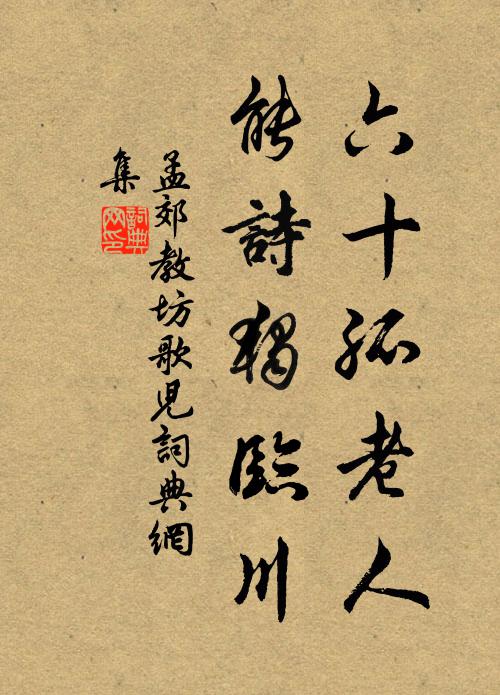 六十孤老人
能詩獨臨川
孟郊教坊歌兒詞典網
集
詞典網印